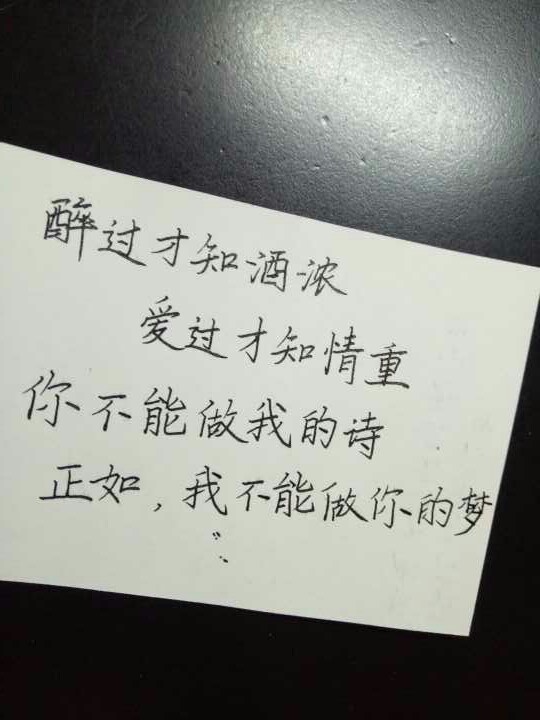 醉过才知酒浓
爱过才知情重
你不能做我的诗
正如，我不能做你的梦